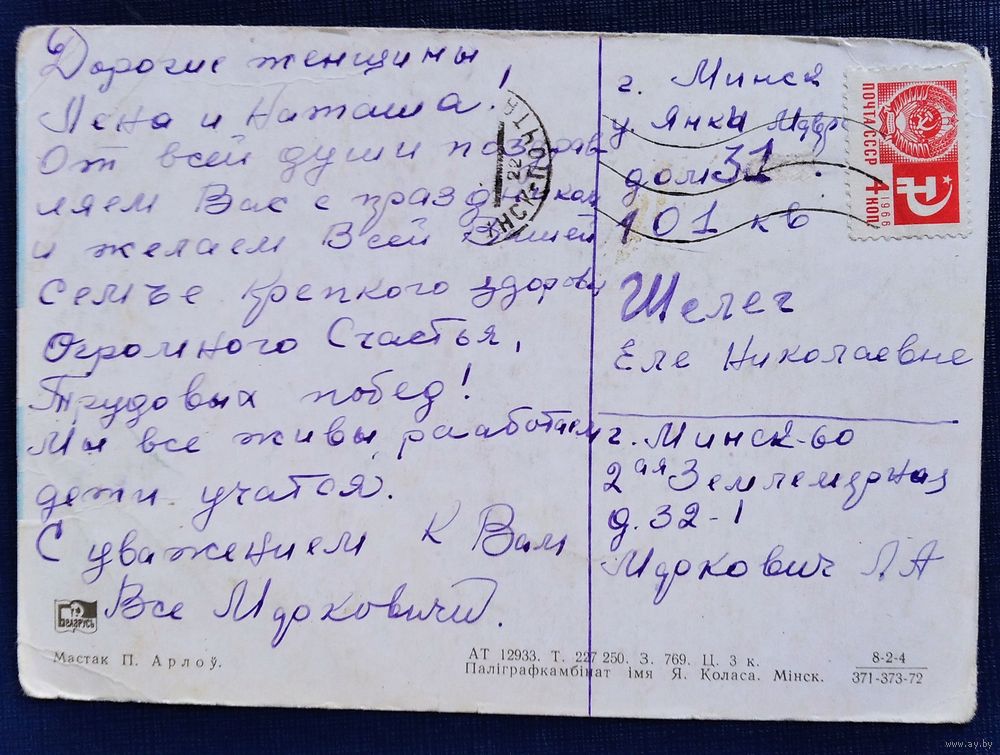 Дорогие женщины
Лена и Наташа!
От всей души поздрав
ляем Вас с праздником
и желаем Всей Вашей
семье крепкого здоровь
Огромного Счастья,
Трудовых побед!
Мы все живы, рааботаем
дети учатся.
С уважением к Вам
Все Мурковичи.
БЕЛАРУСЬ
Мастак П. Арлоў.
г. Минск
у. Янки
дом 31.
101 кв
Шелег
Еле Николаевне
г. Минск-60
2ая Землемерная
д. 32-1
Муркович Л А
ПОЧТА СССР
1966
4 КОП
ПОЧТА
22
АТ 12933. Т. 227 250. З. 769. Ц. 3 к.
Паліграфкамбінат імя Я. Коласа. Мінск.
8-2-4
371-373-72
www.ay.by